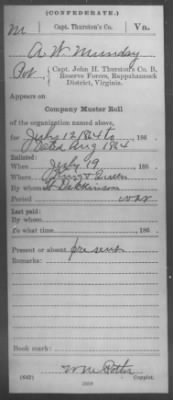 (CONFEDERATE.)
M Capt. Thurston's Co. Va.
A W Munday
Pvt { Capt. John H. Thurston's Co. B, Reserve Forces, Rappahannock District, Virginia.
Appears on
Company Muster Roll
of the organization named above,
for July 12/64 to 186 .
Aug 1864
Enlisted:
When July 19 186 .
Where King & Queen
By whom Dickinson
Period war
Last paid:
By whom
To what time 186 .
Present or absent present
Remarks:
Book mark:
(642) Copyist.